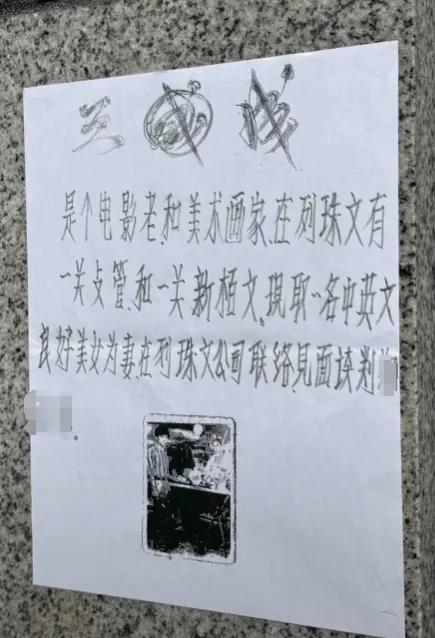 是个电影老、和美术画家、在列珠文有
一关占管、和一关新栢文、现取一名中英文
良好美女为妻、在列珠文公司联络、见面谈判